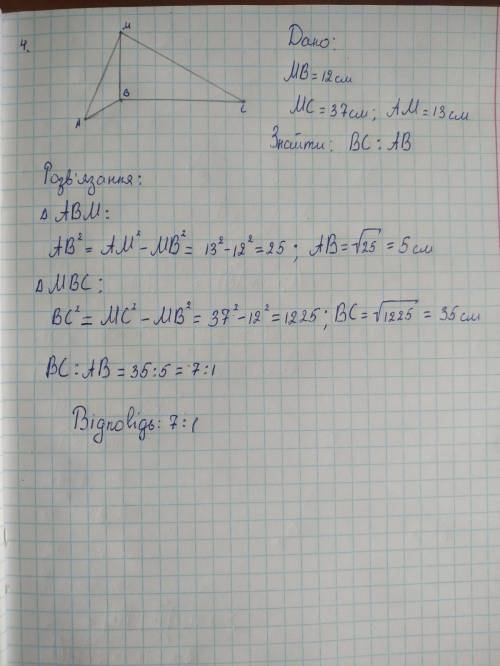 4.
M
B
A
C
Дано:
MB=12см
MC=37см; AM=13см
Знайти: BC:AB
Розв'язання:
△ABM:
AB²=AM²-MB²=13²-12²=25; AB=√25=5см
△MBC:
BC²=MC²-MB²=37²-12²=1225; BC=√1225=35см
BC:AB=35:5=7:1
Відповідь: 7:1